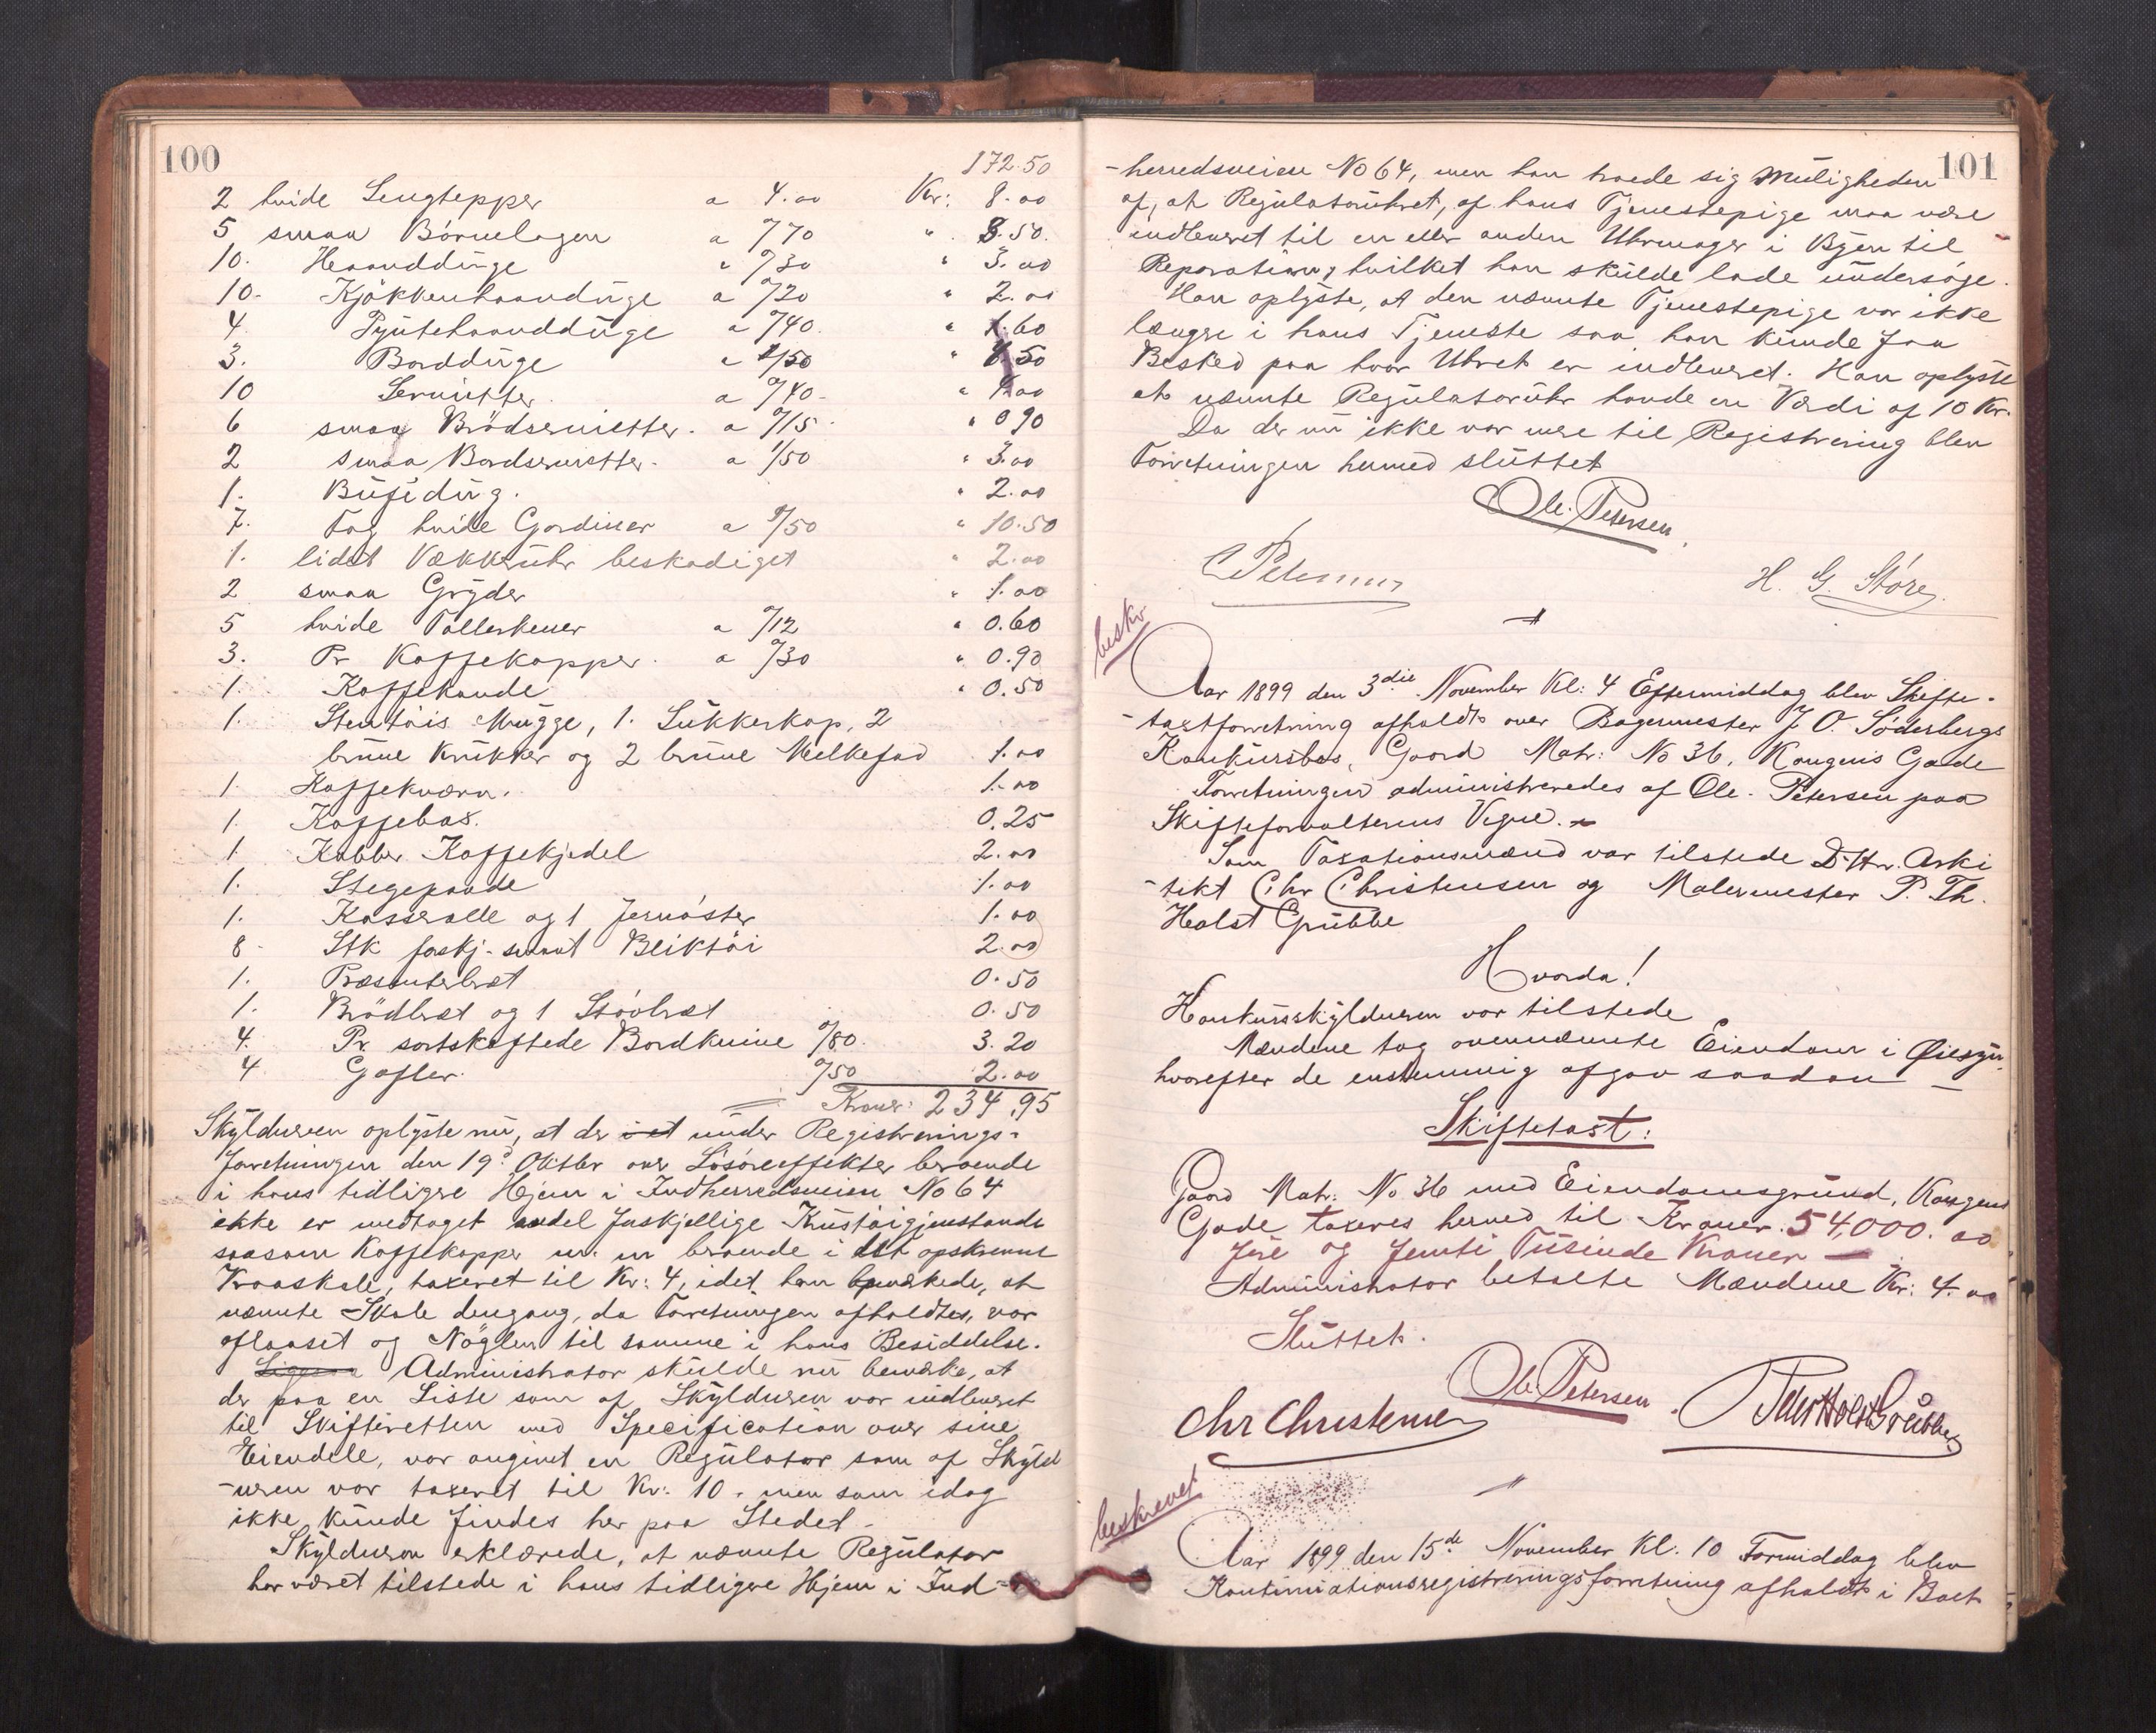 100
172.50
2 hvide Sengtepper a 4.00 Kr: 8.00
5 smaa Börnelagen a 0/70 " 3.50
10. Haanddüge a 0/30 " 3.00
10. Kjökkenhaandüge a 0/20 " 2.00
4. Pyntehaanddüge a 0/40 " 1.60
3. Borddüge a 1/50 " 4.50
10 Servietter. a 0/40 " 4.00
6 smaa Brödservietter. a 0/15 " 0.90
2 smaa Bordservietter. a 1/50 " 3.00
1. Büfidüg. " 2.00
7. Fag hvide Gardiner a 1/50 " 10.50
1. lidet Vækkerühr beskadiget " 2.00
2 smaa Gryder " 1.00
5 hvide Tallerkener a 0/12 " 0.60
3. Pr Kaffekopper. a 0/30 " 0.90
1. Kaffekande " 0.50
1. Stentöis Mügge, 1. Sükkerkop, 2
brüne Krükker og 2 brüne Melkefad 1.00
1. Kaffekværn. 1.00
1. Kaffebøs. 0.25
1. Kobber Kaffekjedel 2.00
1. Stegepande 1.00
1. Kasserolle og 1 Jernöster 1.00
8 Stk forskj. smaat Bliktöi 2.00
1. Præsenterbræt 0.50
1. Brödbræt og 1 Stövbræt 0.50
4. Pr sortskeftede Bordknive 0/80. 3.20
4 Gafler. 0/50 2.00
Kroner: 234.95
Skyldneren oplyste nü, at der i et ünder Registrerings-
forretningen den 19d Oktbr over Lösöreeffekter beroende
i hans tidligere Hjem i Indherredsveien No 64
ikke er medtaget endel forskjellige Küstöigjenstande
saasom Kaffekopper m. m beroende i det opskrevne
Kraaskab, taxeret til Kr: 4, idet han bemærkede, at
nævnte Skab dengang, da Forretningen afholdtes, var
aflaaset og Nöglen til samme i hans Besiddelse.
Administrator skülde nü bemærke, at
der paa en Liste som af Skyldneren var indleveret
til Skifteretten med Specification over sine
Eiendele, var angivet en Regülator som af Skyld
-neren var taxeret til Kr: 10. men som idag
ikke künde findes her paa Stedet.
Skyldneren erklærede, at nævnte Regülator
har været tilstede i hans tidligere Hjem i Ind-
101
-herredsveien No 64, men han troede sig Müligheden
af, at Regülatorühret, af hans Tjenestepige maa være
indleveret til en eller anden Uhrmager i Byen til
Reparation, hvilket han skülde lade ündersöge.
Han oplyste, at den nævnte Tjenestepige var ikke
længre i hans Tjeneste saa han künde faa
Besked paa hvor Uhret er indleveret. Han oplyste
at nævnte Regülatorühr havde en Værdi af 10 Kr.
Da der nü ikke var mere til Registrering blev
Forretningen hermed slüttet
Ole. Petersen
C Petersen
H. G. Störe
beskr
Aar 1899 den 3die November Kl: 4 Eftermiddag blev Skifte-
-taxtforretning afholdt over Bagermester J. O. Söderbergs
Konkürsbos, Gaard Matr: No 36, Kongens Gade
Forretningen administreredes af Ole. Petersen paa
Skifteforvalterens Vegne.
Som Taxationsmænd var tilstede D'Hrr. Arki
-tekt Chr Christensen og Malermester P. Th.
Holst Grübbe
Hvorda!
Konkursskyldneren var tilstede
Mændene tog ovennævnte Eiendom i Öiesyn,
hvorefter de enstemmig afgav saadan
Skiftetaxt:
Gaard Matr: No 36 med Eiendomsgründ, Kongens
Gade taxeres herved til Kroner. 54,000. 00
fire og femti Tüsinde Kroner
Administrator betalte Mændene Kr: 4.00
Slüttet.
Ole Petersen
Chr Christensen
P Th Holst Grübbe
beskrevet
Aar 1899 den 15de November Kl. 10 Formiddag blev
Kontinüationsregistreringsforretning afholdt i Boet